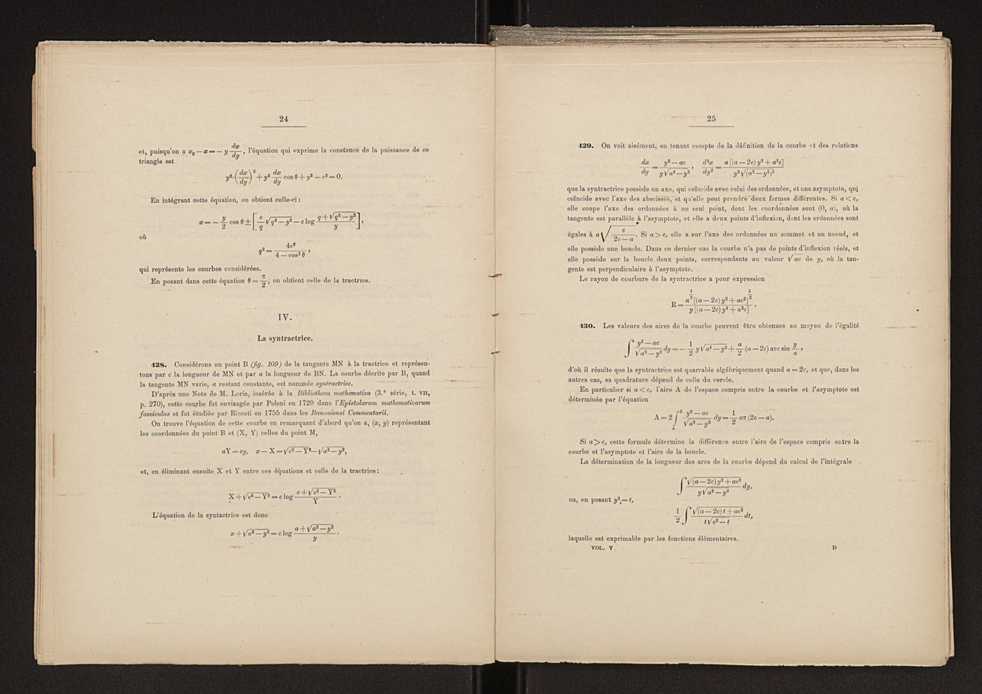 24
et, puisqu'on a x₀ — x = — y dx/dy, l'équation qui exprime la constance de la puissance de ce
triangle est
y² (dx/dy)² + y² dx/dy cos θ + y² — c² = 0.
En intégrant cette équation, on obtient celle-ci:
x = — y/2 cos θ ± [c/q √q² — y² — c log (q + √q² — y²)/y],
où
q² = 4c²/(4 — cos² θ),
qui représente les courbes considérées.
En posant dans cette équation θ = π/2, on obtient celle de la tractrice.
IV.
La syntractrice.
428. Considérons un point B (fig. 109) de la tangente MN à la tractrice et représen-
tons par c la longueur de MN et par a la longueur de BN. La courbe décrite par B, quand
la tangente MN varie, a restant constante, est nommée syntractrice.
D'après une Note de M. Loria, insérée à la Bibliotheca mathematica (3.ᵉ série, t. VII,
p. 270), cette courbe fut envisagée par Poleni en 1729 dans l'Epistolarum mathematicarum
fasciculus et fut étudiée par Riccati en 1755 dans les Bononiensi Commentarii.
On trouve l'équation de cette courbe en remarquant d'abord qu'on a, (x, y) représentant
les coordonnées du point B et (X, Y) celles du point M,
aY = cy, x — X = √c² — Y² — √a² — y²,
et, en éliminant ensuite X et Y entre ces équations et celle de la tractrice:
X + √c² — Y² = c log (c + √c² — Y²)/Y.
L'équation de la syntactrice est donc
x + √a² — y² = c log (a + √a² — y²)/y.
25
429. On voit aisément, en tenant compte de la définition de la courbe et des relations
dx/dy = (y² — ac)/(y √a² — y²), d²x/dy² = a [(a — 2c) y² + a²c]/(y² √(a² — y²)³)
que la syntractrice possède un axe, qui coïncide avec celui des ordonnées, et une asymptote, qui
coïncide avec l'axe des abscisses, et qu'elle peut prendre deux formes différentes. Si a < c,
elle coupe l'axe des ordonnées à un seul point, dont les coordonnées sont (0, a), où la
tangente est parallèle à l'asymptote, et elle a deux points d'inflexion, dont les ordonnées sont
égales à a √c/(2c — a). Si a > c, elle a sur l'axe des ordonnées un sommet et un noeud, et
elle possède une boucle. Dans ce dernier cas la courbe n'a pas de points d'inflexion réels, et
elle possède sur la boucle deux points, correspondants au valeur √ac de y, où la tan-
gente est perpendiculaire à l'asymptote.
Le rayon de courbure de la syntractrice a pour expression
R = a^½ [(a — 2c) y² + ac²]^(3/2) / (y [(a — 2c) y² + a²c]).
430. Les valeurs des aires de la courbe peuvent être obtenues au moyen de l'égalité
∫ (y² — ac)/√a² — y² dy = — 1/2 y √a² — y² + a/2 (a — 2c) arc sin y/a,
d'où il résulte que la syntractrice est quarrable algébriquement quand a = 2c, et que, dans les
autres cas, sa quadrature dépend de celle du cercle.
En particulier si a < c, l'aire A de l'espace compris entre la courbe et l'asymptote est
déterminée par l'équation
A = 2 ∫ (y² — ac)/√a² — y² dy = 1/2 aπ (2c — a).
Si a > c, cette formule détermine la différence entre l'aire de l'espace compris entre la
courbe et l'asymptote et l'aire de la boucle.
La détermination de la longueur des arcs de la courbe dépend du calcul de l'intégrale
∫ √(a — 2c) y² + ac² / (y √a² — y²) dy,
ou, en posant y² = t,
1/2 ∫ √(a — 2c) t + ac² / (t √a² — t) dt,
laquelle est exprimable par les fonctions élémentaires.
VOL. V D